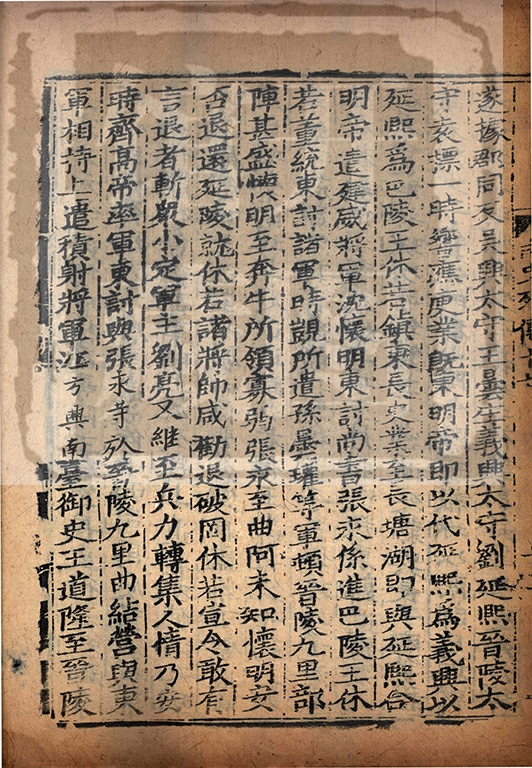 遂據郡同反吳興太守王曇生義興太守劉延熙晉陵太
守袁摽一時響應庾業旣東明帝卽以代延熙爲義興以
延熙爲巴陵王休若鎮東長史業至長塘湖卽與延熙合
明帝遣建威將軍沈懷明東討尚書張永係進巴陵王休
若董統東討諸軍時覬所遣孫曇瓘等軍頓晉陵九里部
陣甚盛懷明至奔牛所領寡弱張永至曲阿未知懷明安
否退還延陵就休若諸將帥咸勸退破罔休若宣令敢有
言退者斬衆小定軍主劉亮又繼至兵力轉集人情乃安
時齊高帝率軍東討與張永等於晉陵九里曲結營與東
軍相持上遣積射將軍江方興南臺御史王道隆至晉陵